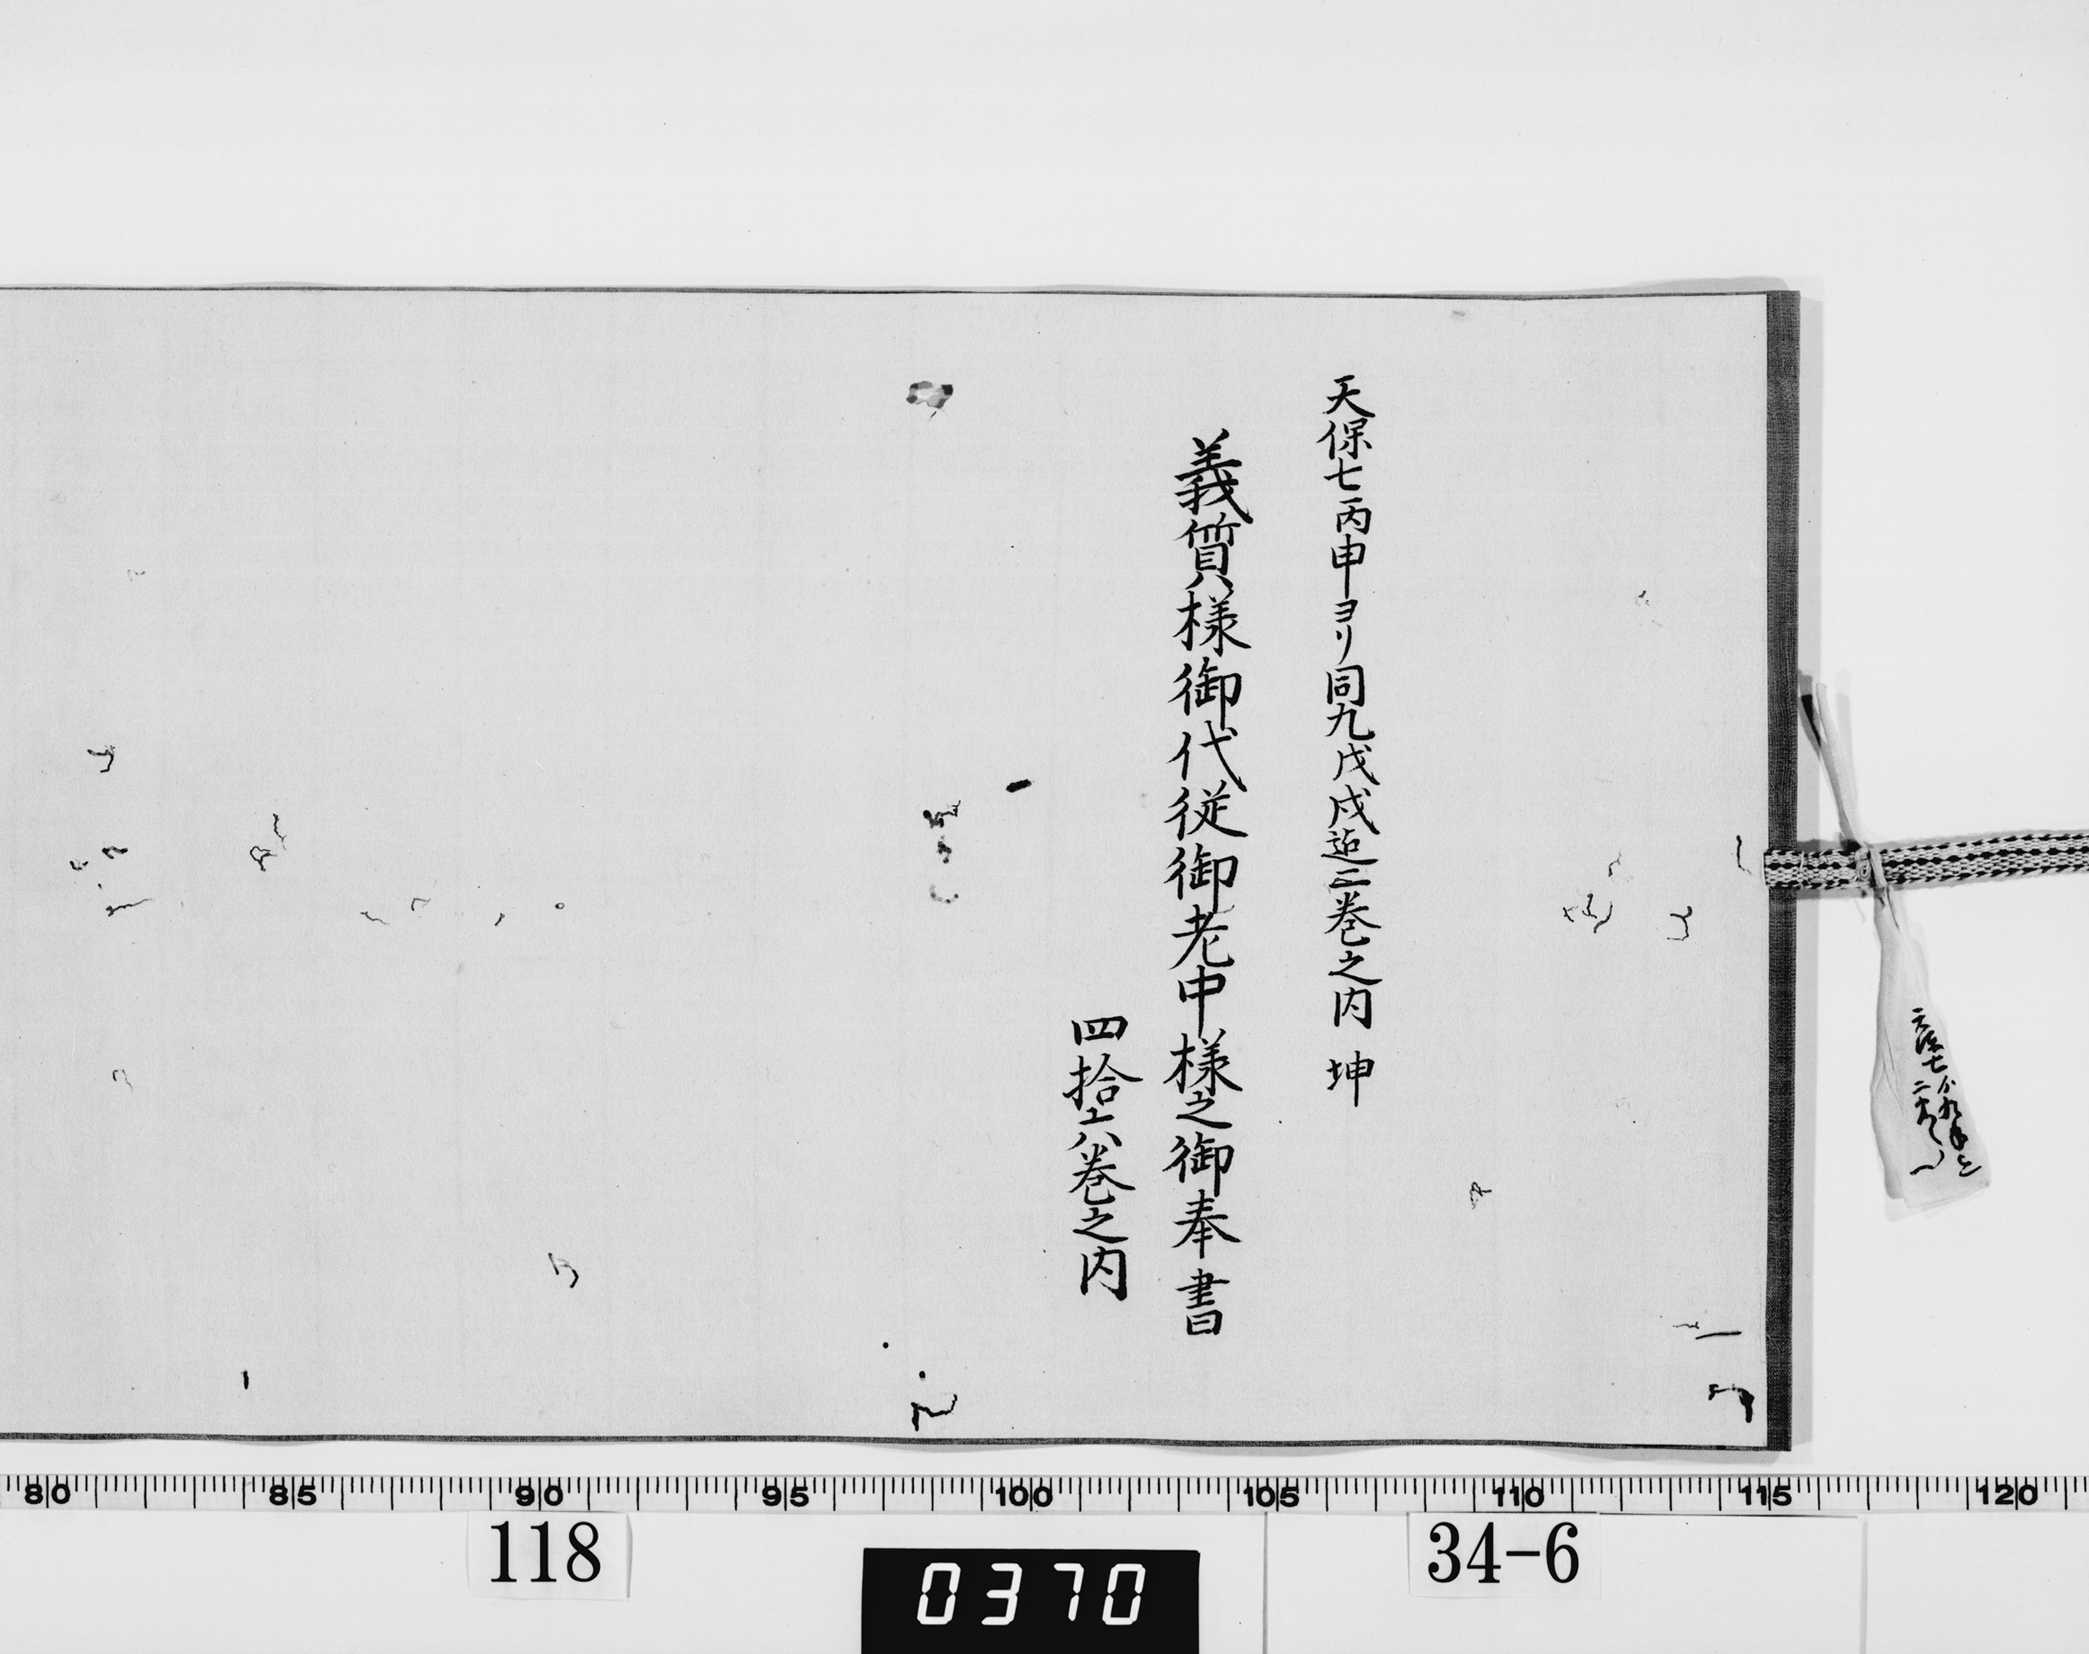 天保七丙申ヨリ同九戊戌迄二巻之内　坤
義質様御代従御老中様之御奉書
四拾六巻之内
80 85 90 95 100 105 110 115 120
118
0370
34-6